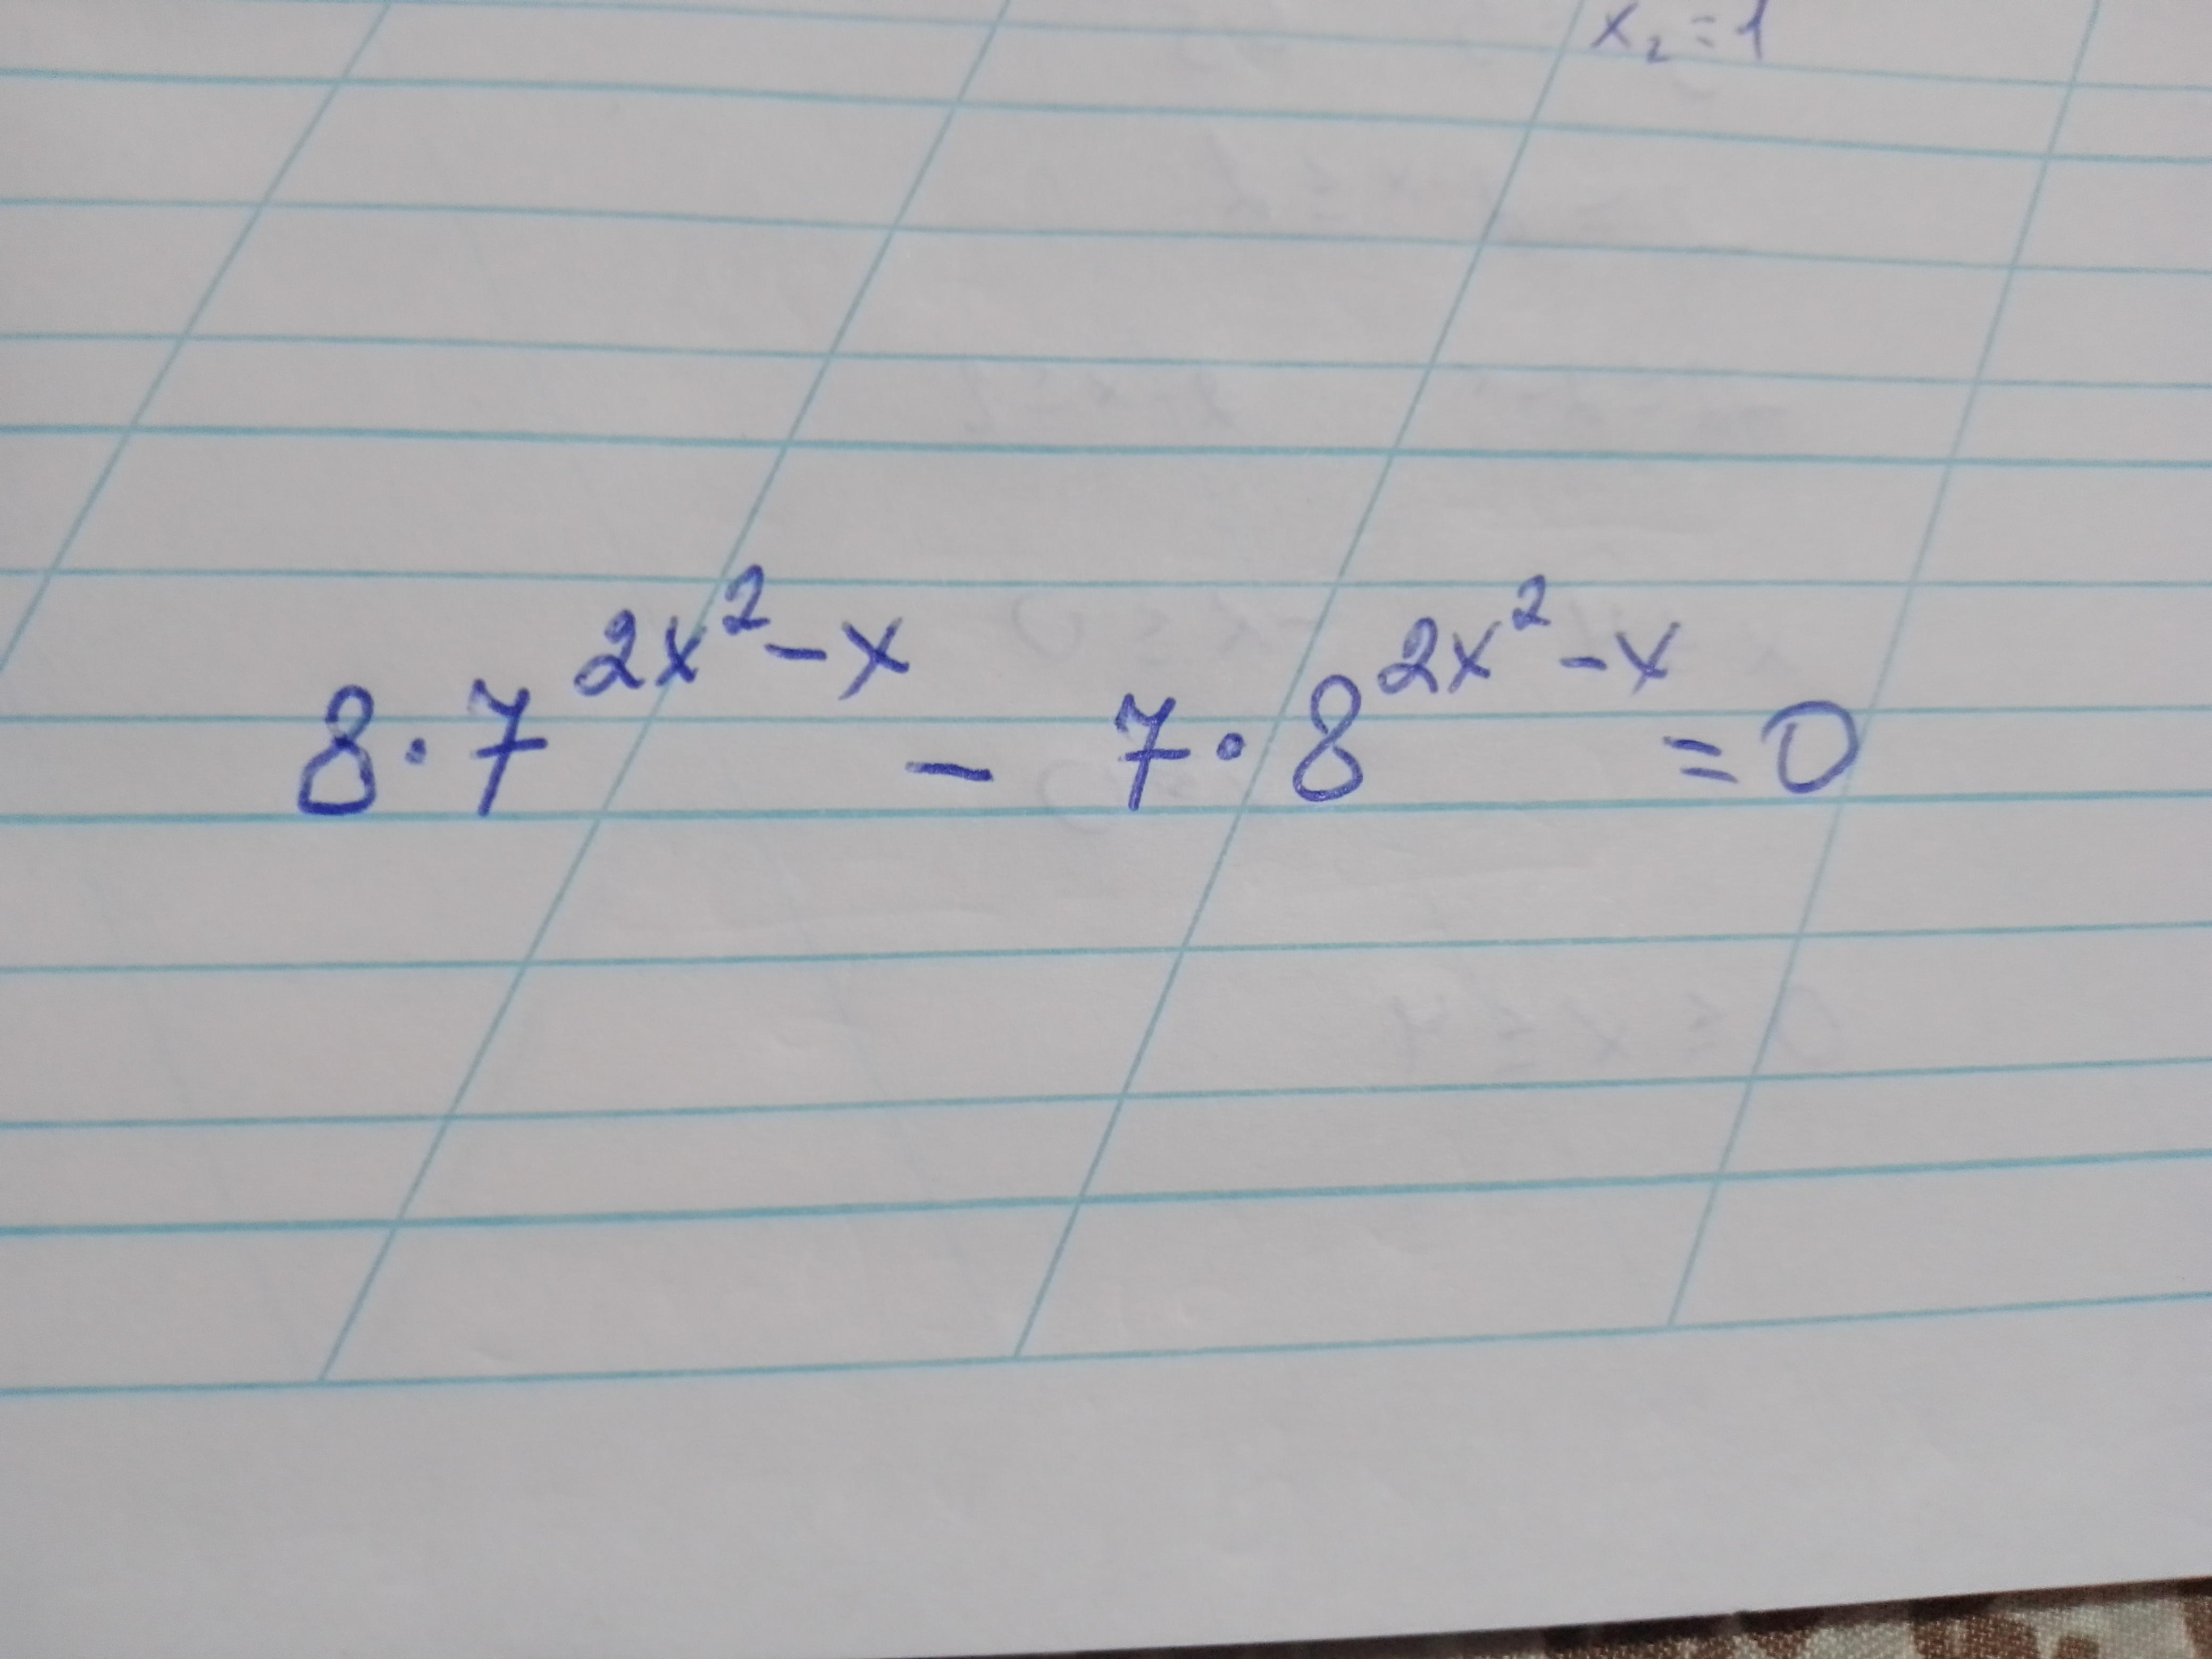 x₂ = 1
8 · 7^(2x² - x) - 7 · 8^(2x² - x) = 0